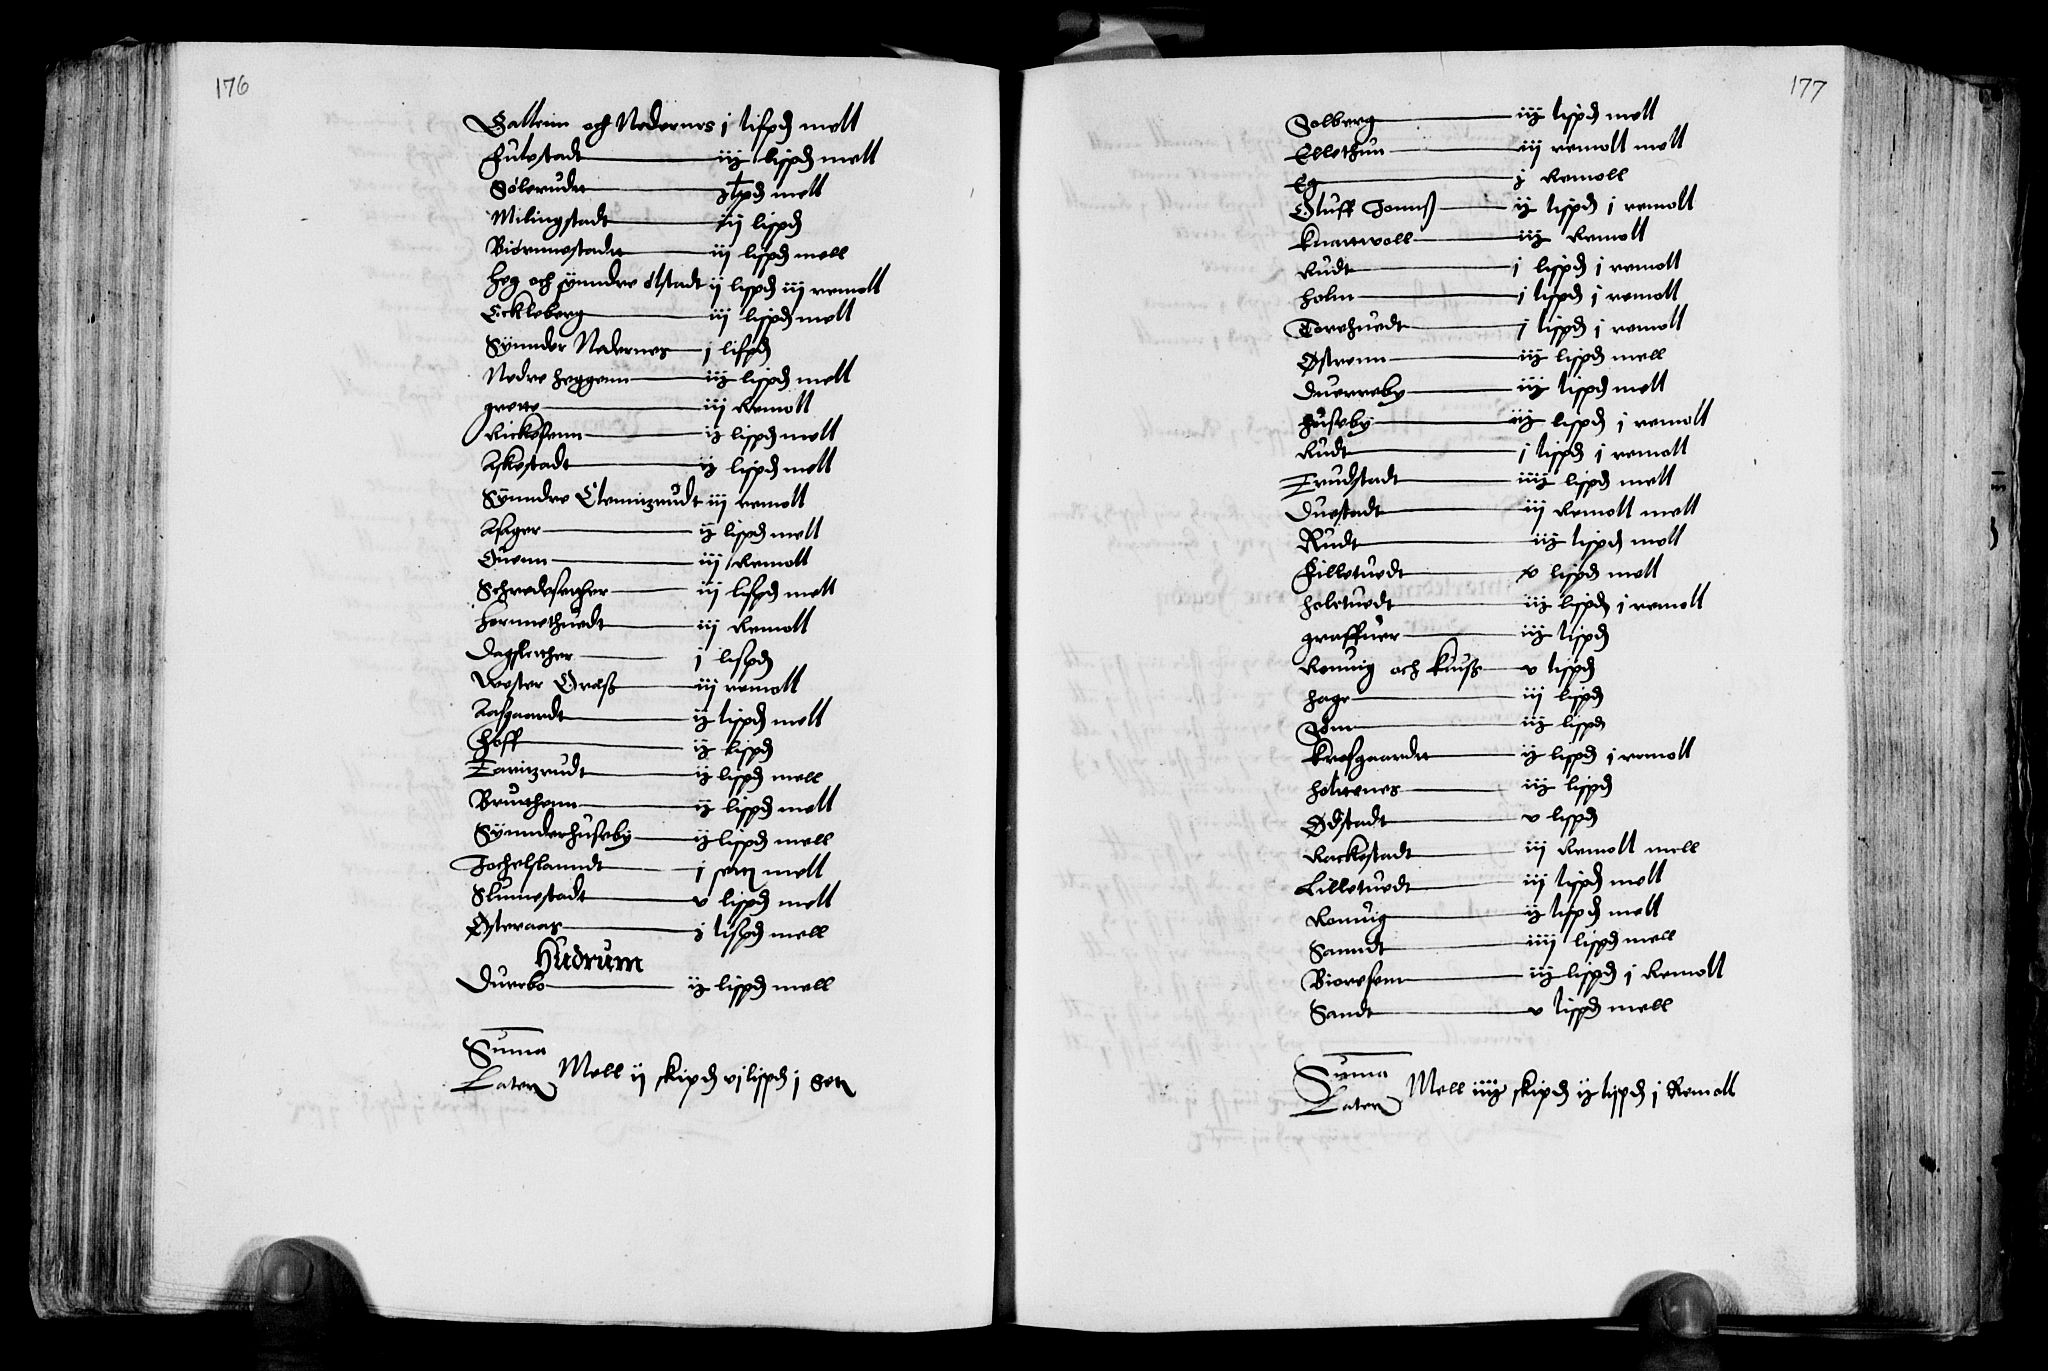 176
Galleim och Nedernes j lispd mell
Fulestadt iij lispd mell
Sølerudtt j lispd mell
Milingstadt iij lispd
Biørnnestadtt iij lispd mell
Heg och synndre ølstadt ij lispd iij remoll
Eckleberg iij lispd mell
Synnder Nedernes j lispd
Nedre Heggenn iij lispd mell
grette iij Remoll
Rickesenn ij lispd mell
Askestadt ij lispd mell
Synndre Clemitzrudt iij remoll
Asager ij lispd mell
Quenn iij Remoll
Schredsether iij lispd mell
Hernnethuedt iij Remoll
Dagslether j lispd
Wester Græss iij remoll
Aasgaardt ij lispd mell
Hoff ij lispd
Taritzrudt ij lispd mell
Brutthenn ij lispd mell
Synnderhuseby ij lispd mell
Jochelslanndt j sett mell
Slumestadt v lispd mell
Østeraas j lispd mell
Hudrum
Duerbo ij lispd mell
Suma
Later Mell ij skipd vj lispd j Sett
177
Solberg iij lispd mell
Ellethun iij remoll mell
Eg j Remoll
Oluff Jonnß ij lispd j remoll
Knattwoll iij Remoll
Rudt j lispd j remoll
Holm j lispd j remoll
Torehuedt j lispd j remoll
Østrenn iij lispd mell
Duerreby iij lispd mell
Huseby iij lispd j remoll
Rudt j lispd j remoll
Trudstadt iiij lispd mell
Duestadt iij Remoll mell
Rudt iij lispd mell
Killetuedt v lispd mell
Holetuedt iij lispd j remoll
graffuer iij lispd
Remuig och Knuß v lispd
Hage iij lispd
Sønn iij lispd
Krosgaardtt ij lispd j remoll
Holttenes iij lispd
Ødstadt v lispd
Rackestadt iij Remoll mell
Lilletuedt iij lispd mell
Remuig ij lispd mell
Sanndt iiij lispd mell
Biøresem iij lispd j Remoll
Sandt v lispd mell
Suma
Later Mell iiij skipd ij lispd j Remoll